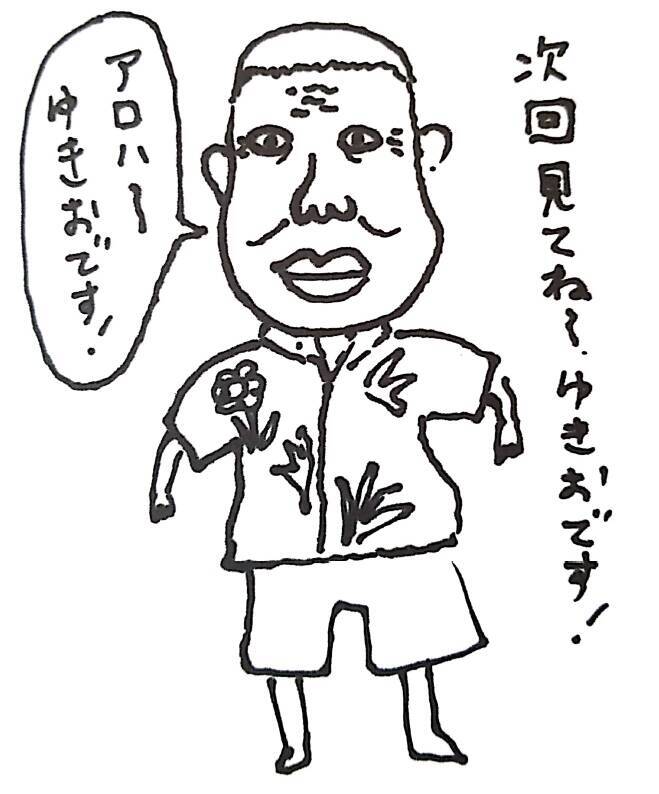 次回見てね〜.ゆきおです!
アロハ〜
ゆきおです!